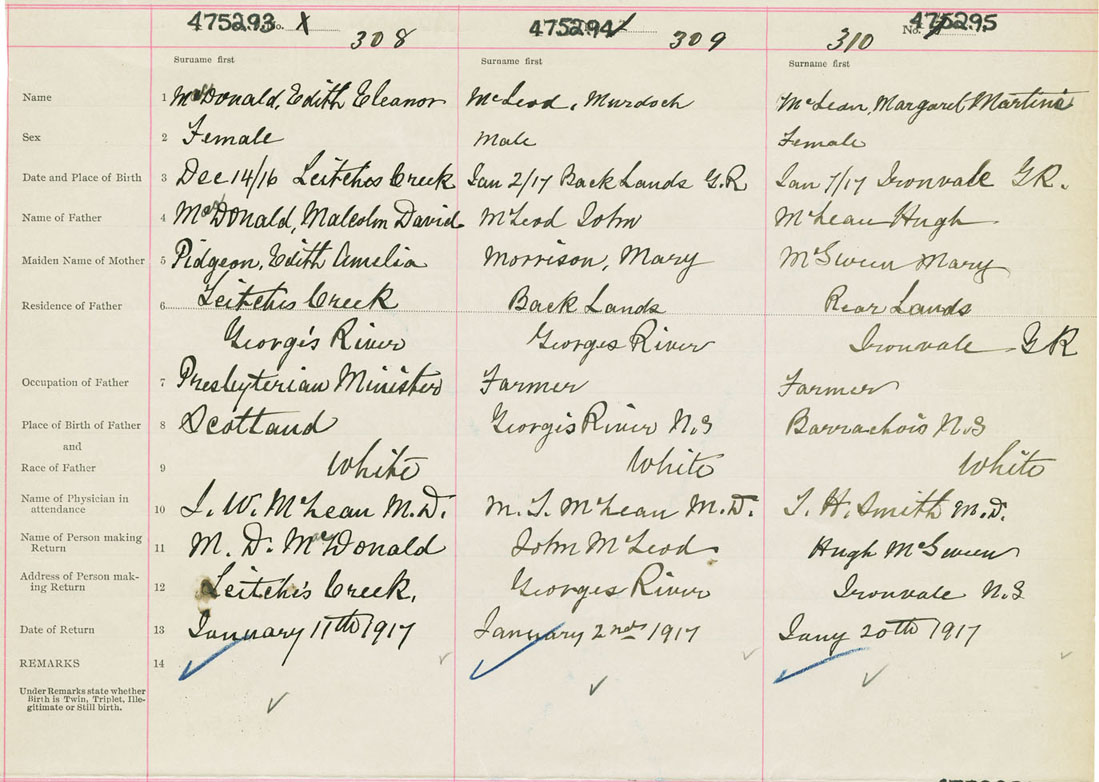 475293 No. X 308 475294 309 310 No. 475295
Surname first Surname first Surname first
Name 1 McDonald, Edith Eleanor McLeod, Murdoch McLean, Margaret Martina
Sex 2 Female Male Female
Date and Place of Birth 3 Dec 14/16 Leitches Creek Jan 2/17 Back Lands G.R Jan 7/17 Ironvale GR.
Name of Father 4 MacDonald, Malcolm David McLeod John McLean Hugh
Maiden Name of Mother 5 Pidgeon, Edith Amelia Morrison, Mary McSween Mary
Residence of Father 6 Leitchis Creek Back Lands Rear Lands
Georgis River Georges River Ironvale GR
Occupation of Father 7 Presbyterian Minister Farmer Farmer
Place of Birth of Father 8 Scotland Georgis River N.S Barrachois N.S
and
Race of Father 9 White White White
Name of Physician in
attendance 10 J. W. McLean M.D. M. T. McLean M.D. J. H. Smith M.D.
Name of Person making
Return 11 M. D. MacDonald John McLeod Hugh McSween
Address of Person mak-
ing Return 12 Leitchis Creek, Georges River Ironvale N.S
Date of Return 13 January 11th 1917 January 2nd 1917 Jany 20th 1917
REMARKS 14
Under Remarks state whether
Birth is Twin, Triplet, Ille-
gitimate or Still birth.